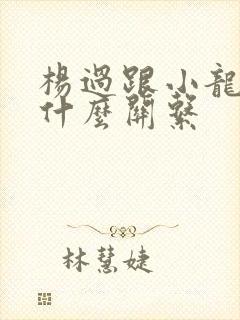 楊過跟小龍
什麼關繫
林慧婕